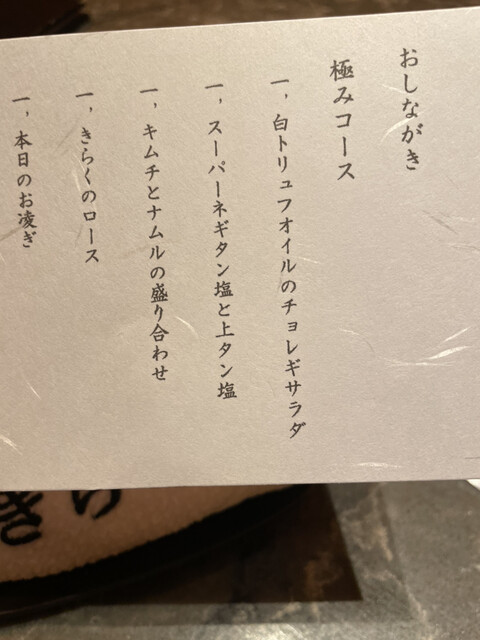 おしながき
極みコース
一，白トリュフオイルのチョレギサラダ
一，スーパーネギタン塩と上タン塩
一，キムチとナムルの盛り合わせ
一，きらくのロース
一，本日のお凌ぎ
きら